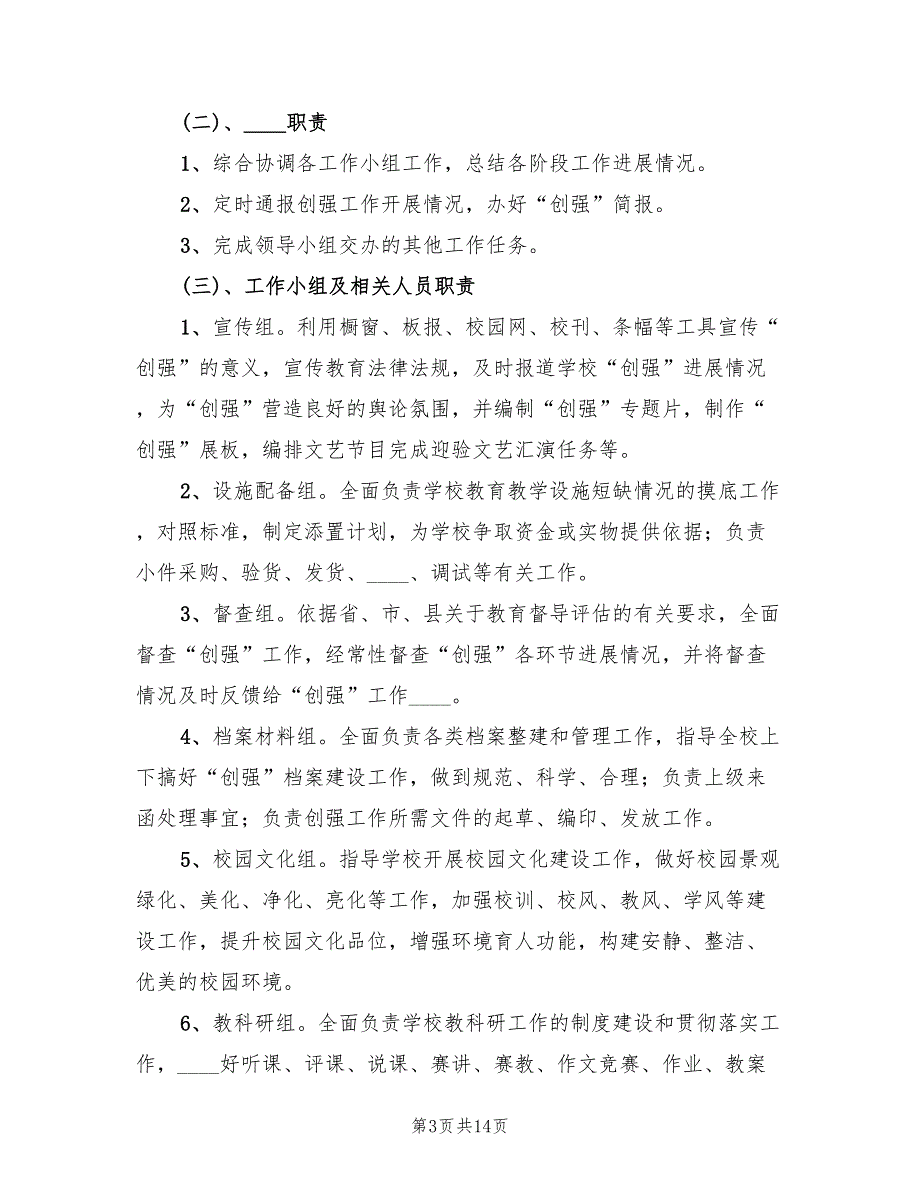 (二)、____职责
1、综合协调各工作小组工作，总结各阶段工作进展情况。
2、定时通报创强工作开展情况，办好“创强”简报。
3、完成领导小组交办的其他工作任务。
(三)、工作小组及相关人员职责
1、宣传组。利用橱窗、板报、校园网、校刊、条幅等工具宣传“
创强”的意义，宣传教育法律法规，及时报道学校“创强”进展情况
，为“创强”营造良好的舆论氛围，并编制“创强”专题片，制作“
创强”展板，编排文艺节目完成迎验文艺汇演任务等。
2、设施配备组。全面负责学校教育教学设施短缺情况的摸底工作
，对照标准，制定添置计划，为学校争取资金或实物提供依据；负责
小件采购、验货、发货、____、调试等有关工作。
3、督查组。依据省、市、县关于教育督导评估的有关要求，全面
督查“创强”工作，经常性督查“创强”各环节进展情况，并将督查
情况及时反馈给“创强”工作____。
4、档案材料组。全面负责各类档案整建和管理工作，指导全校上
下搞好“创强”档案建设工作，做到规范、科学、合理；负责上级来
函处理事宜；负责创强工作所需文件的起草、编印、发放工作。
5、校园文化组。指导学校开展校园文化建设工作，做好校园景观
绿化、美化、净化、亮化等工作，加强校训、校风、教风、学风等建
设工作，提升校园文化品位，增强环境育人功能，构建安静、整洁、
优美的校园环境。
6、教科研组。全面负责学校教科研工作的制度建设和贯彻落实工
作，____好听课、评课、说课、赛讲、赛教、作文竞赛、作业、教案
第3页共14页